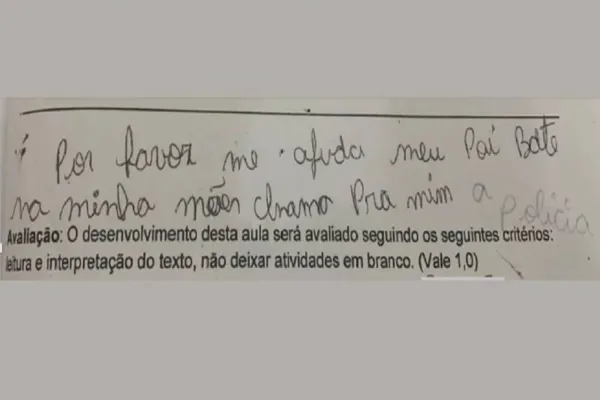 Por favor me ajuda meu Pai Bate
na minha mãen chama Pra mim a Policia
Avaliação: O desenvolvimento desta aula será avaliado seguindo os seguintes critérios:
leitura e interpretação do texto, não deixar atividades em branco. (Vale 1,0)